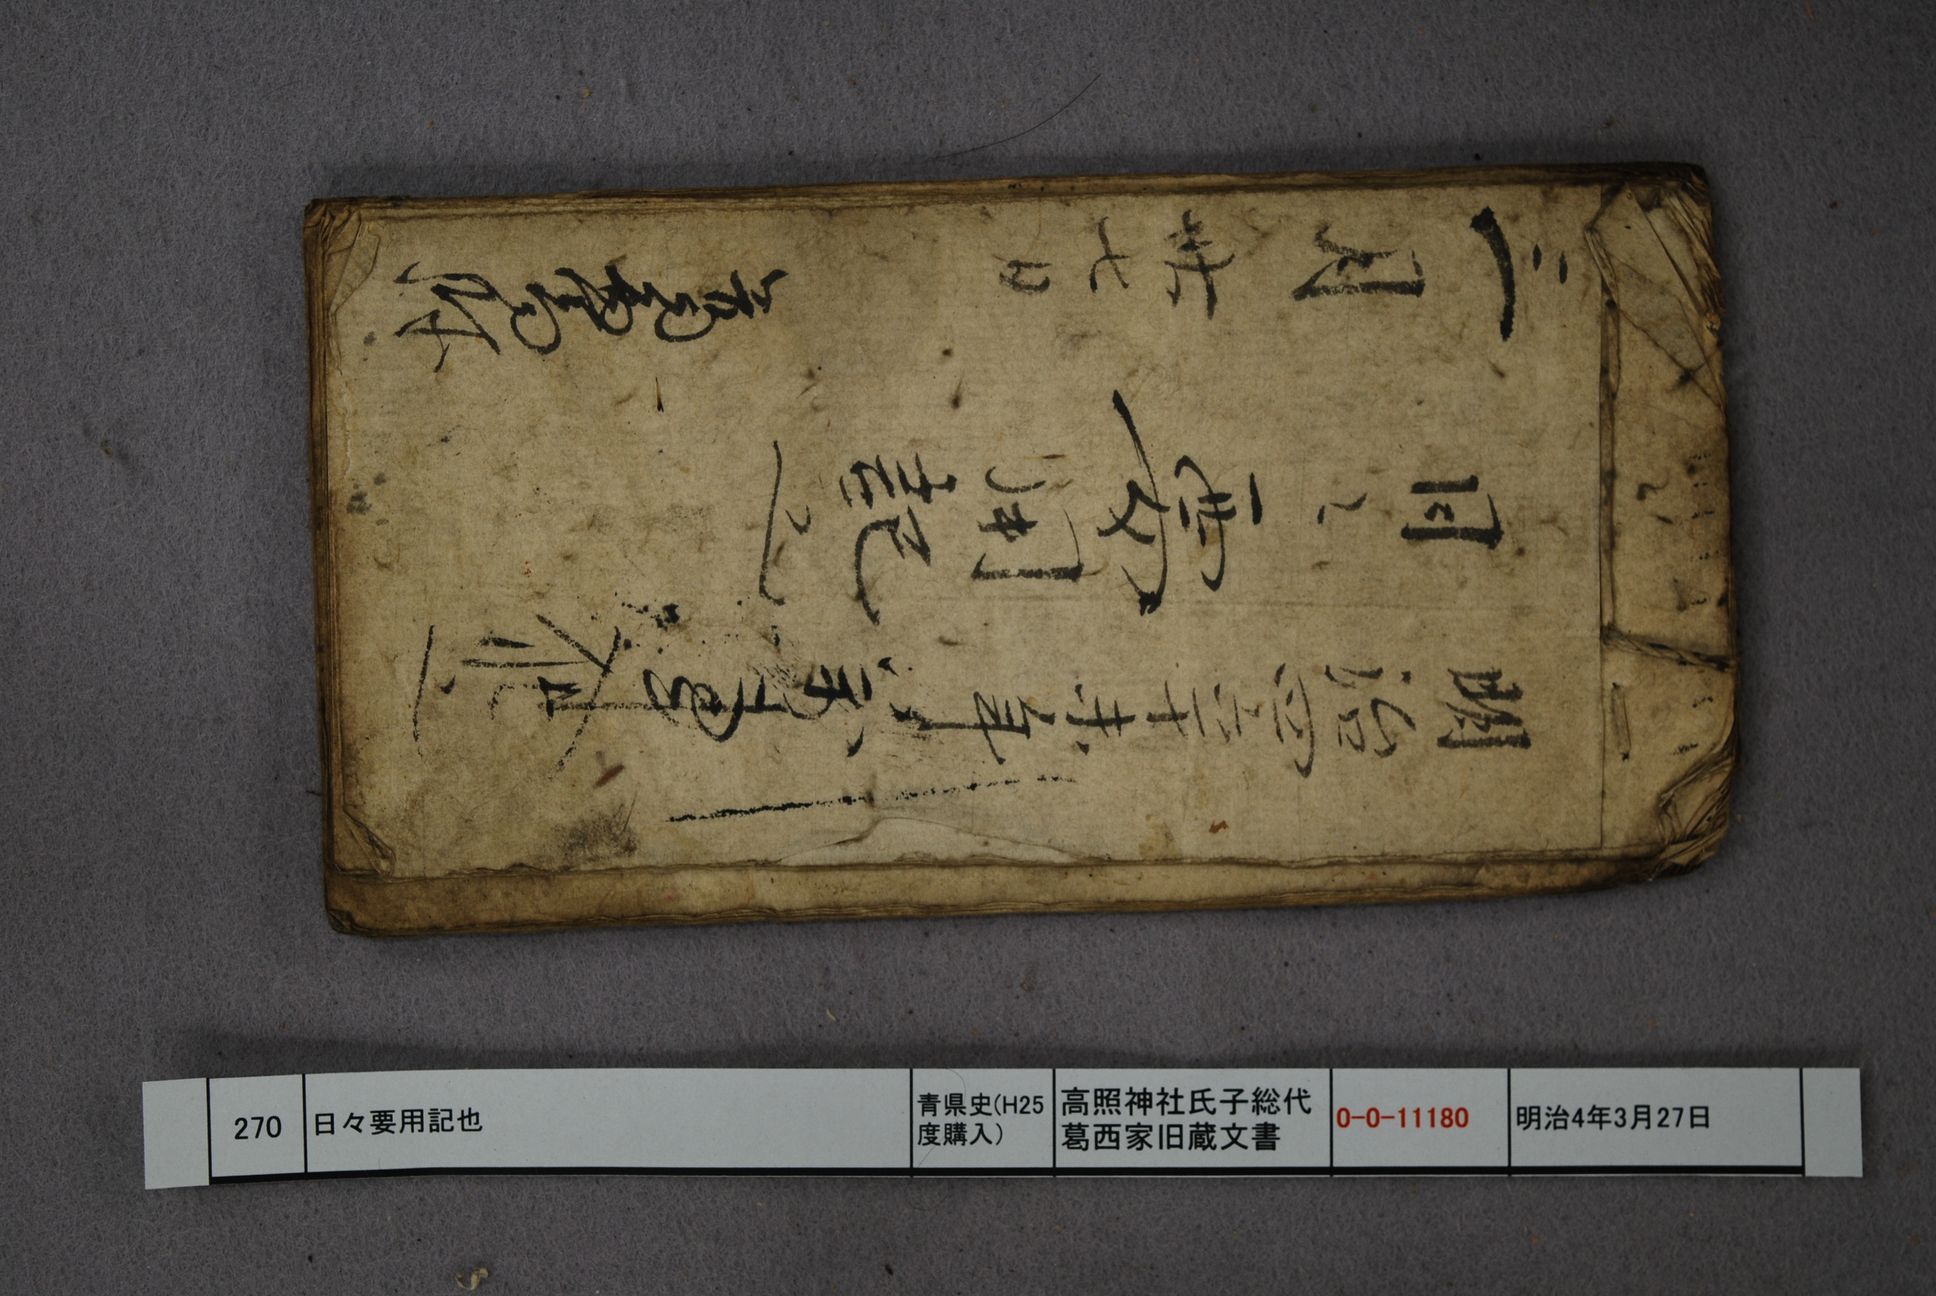 明治四辛未年
日々要用記也
三月廿七日
270 日々要用記也 青県史(H25度購入) 高照神社氏子総代葛西家旧蔵文書 0-0-11180 明治4年3月27日